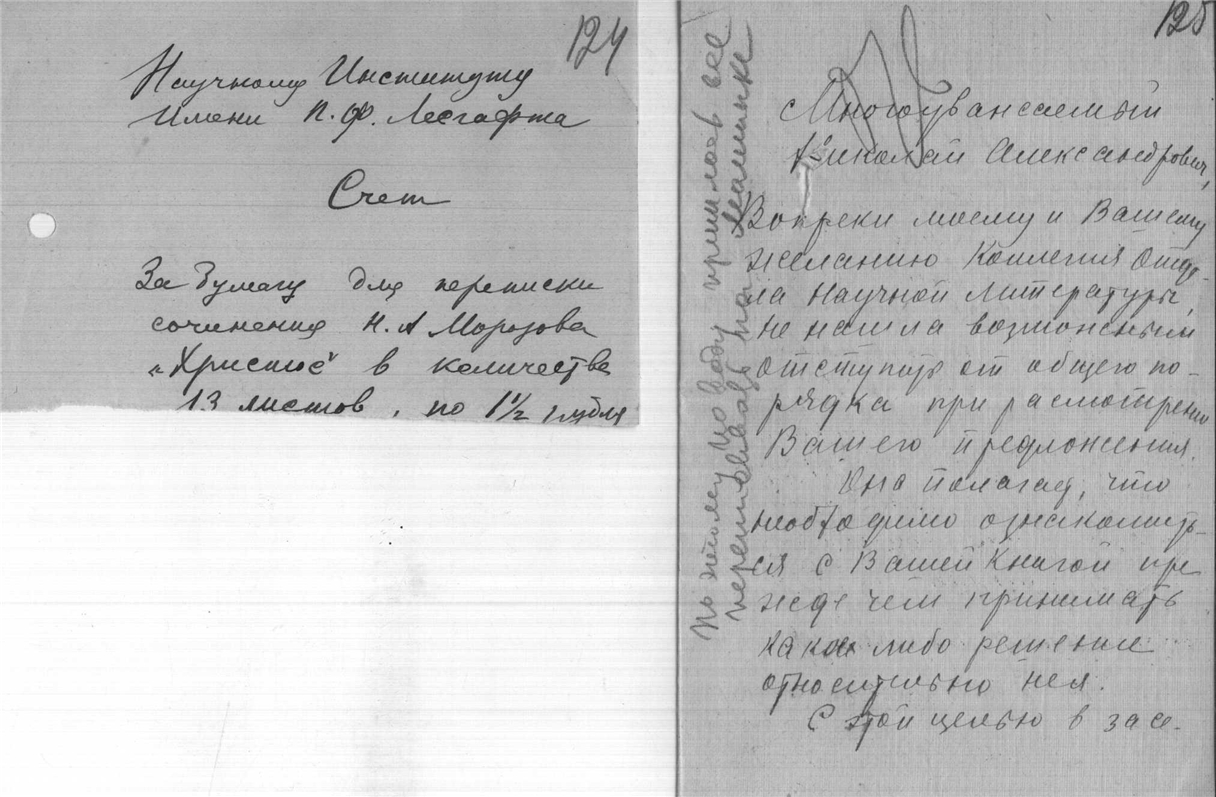 124
Научному Институту
Имени П.Ф. Лесгафта
Счет
За бумагу для переписки
сочинения Н.А Морозова
„Христос" в количестве
13 листов, по 1½ рубля
125
Многоуважаемый
Николай Александрович,
Вопреки моему и Вашему
желанию Коллегия Отде-
ла Научной Литературы,
не нашла возможным
отступить от общего по-
рядка при расмотрении
Вашего предложения.
Она полагает, что
необходимо ознакомить-
ся с Вашей Книгой пре
жде чем принимать
какое либо решение
относительно нея.
С этой целью в засе-
По этому поводу пришлось все
переписывать на машинке